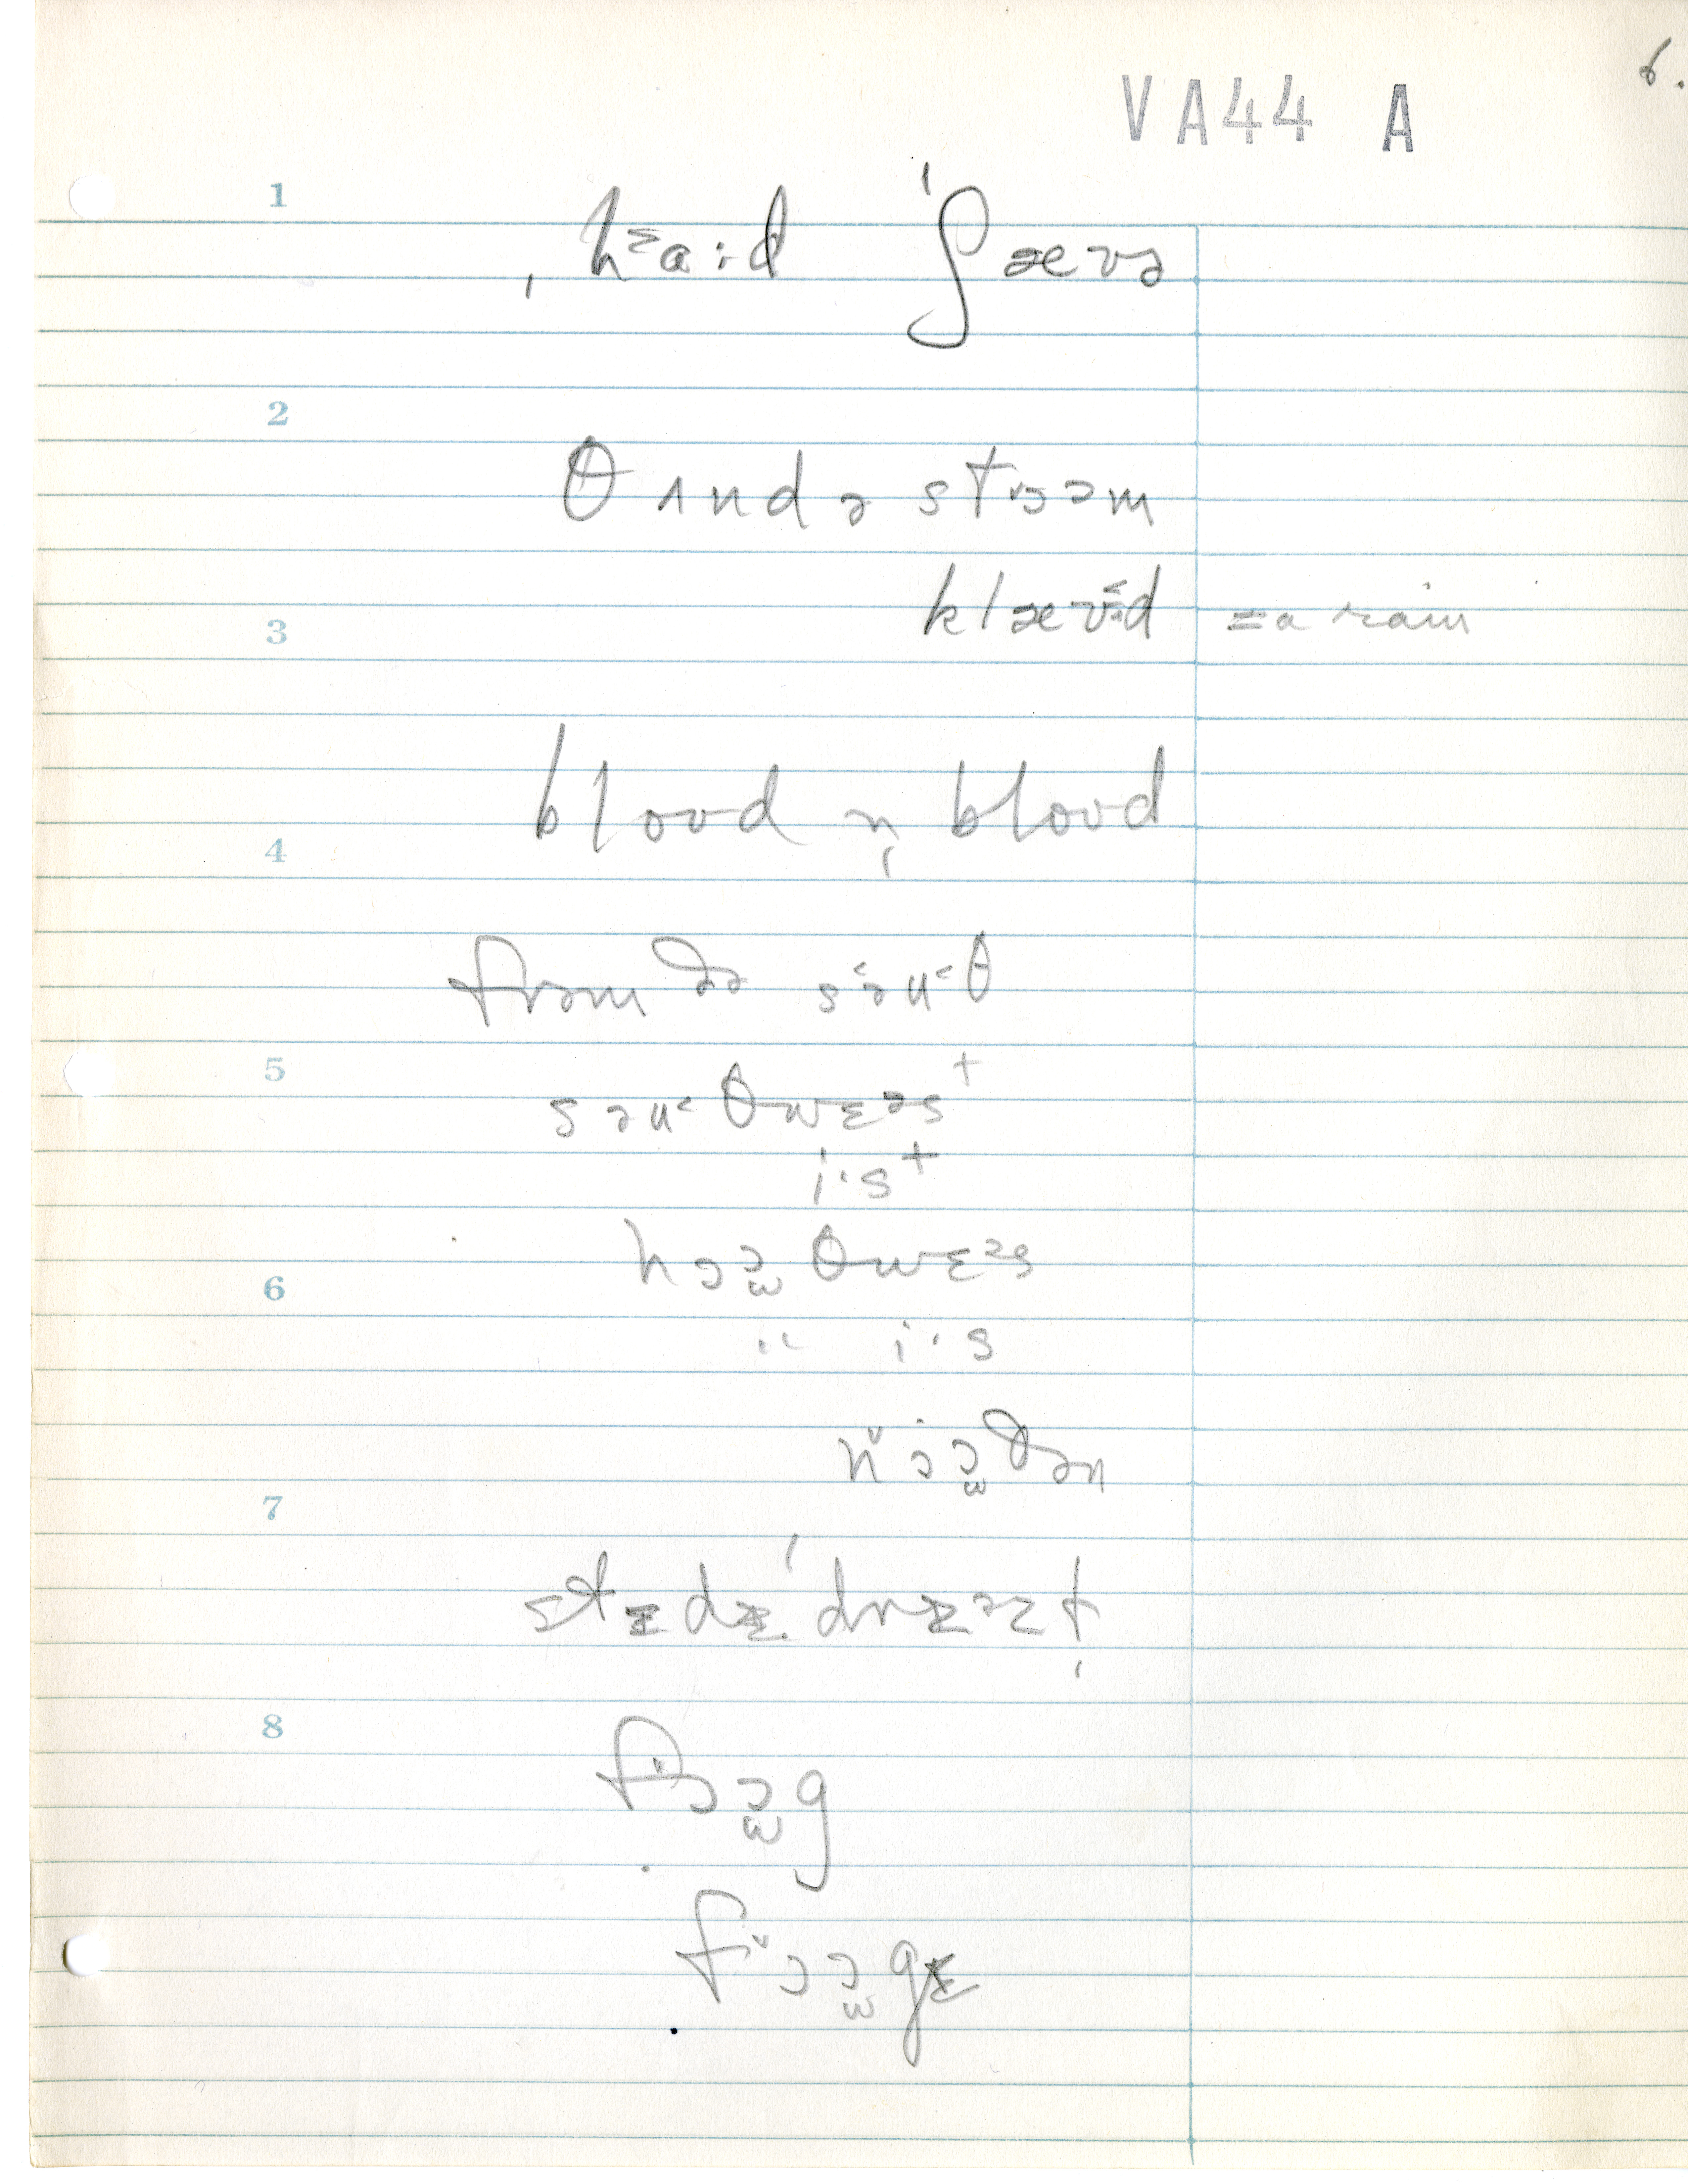 6.
VA44 A
1
ˌhᵋa:d ˈʃæʊə
2
θʌndəstrəm
klæʊɪd = a rain
3
blood n̩ blood
4
frəm ðə sə˂u˂θ
5
səu˂θwɛəs⁺
i·s⁺
hɔə̯θwɛəs
6
" i·s
nɔə̯ðən
7
stɛdɛˈdrɛəzt
8
fɔə̯g
fɔə̯gɛ